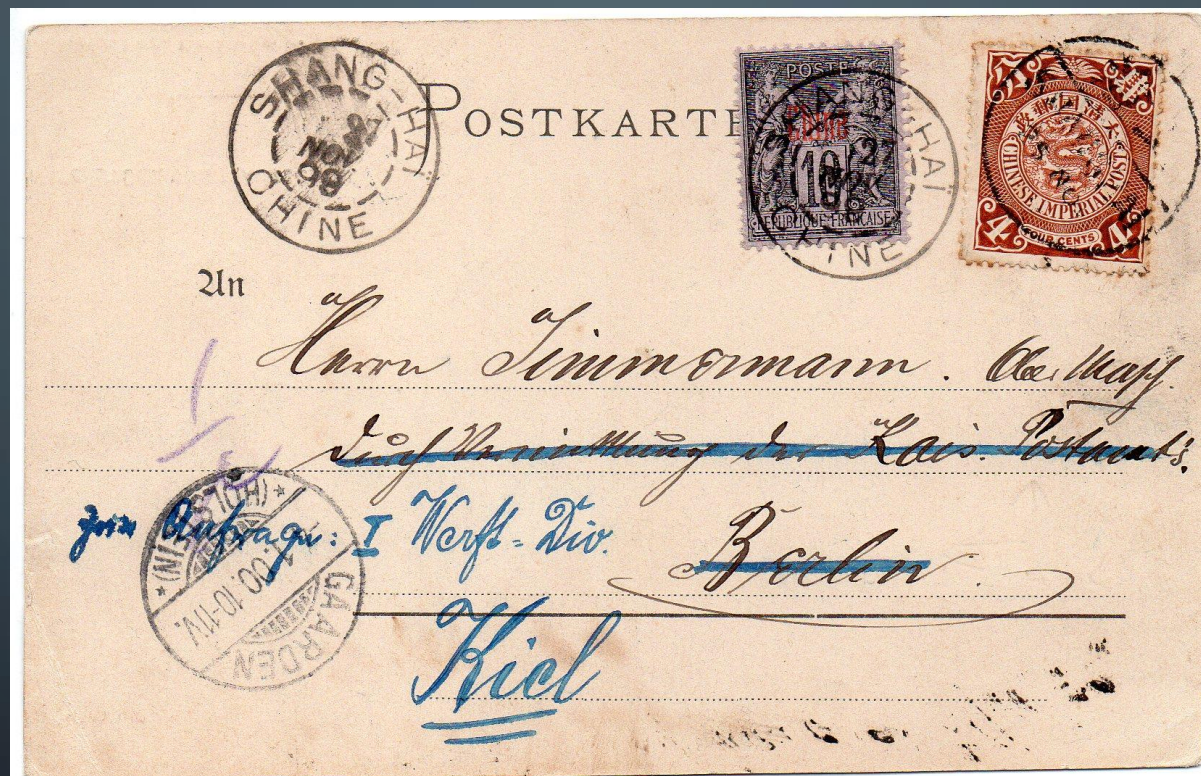 SHANG-HAÏ
27
NOV
99
CHINE
POSTKARTE
POSTES
Chine
10
RÉPUBLIQUE FRANÇAISE
SHANG-HAÏ
27
CHINE
大清國郵政
CHINESE IMPERIAL POST
4 FOUR CENTS 4
An
Herrn Zimmermann. Ober Masch.
durch Vermittlung des Kais. Postamt's.
Berlin.
Anfrage: I Werft-Div.
Kiel
GAARDEN
1.00.10-11V.